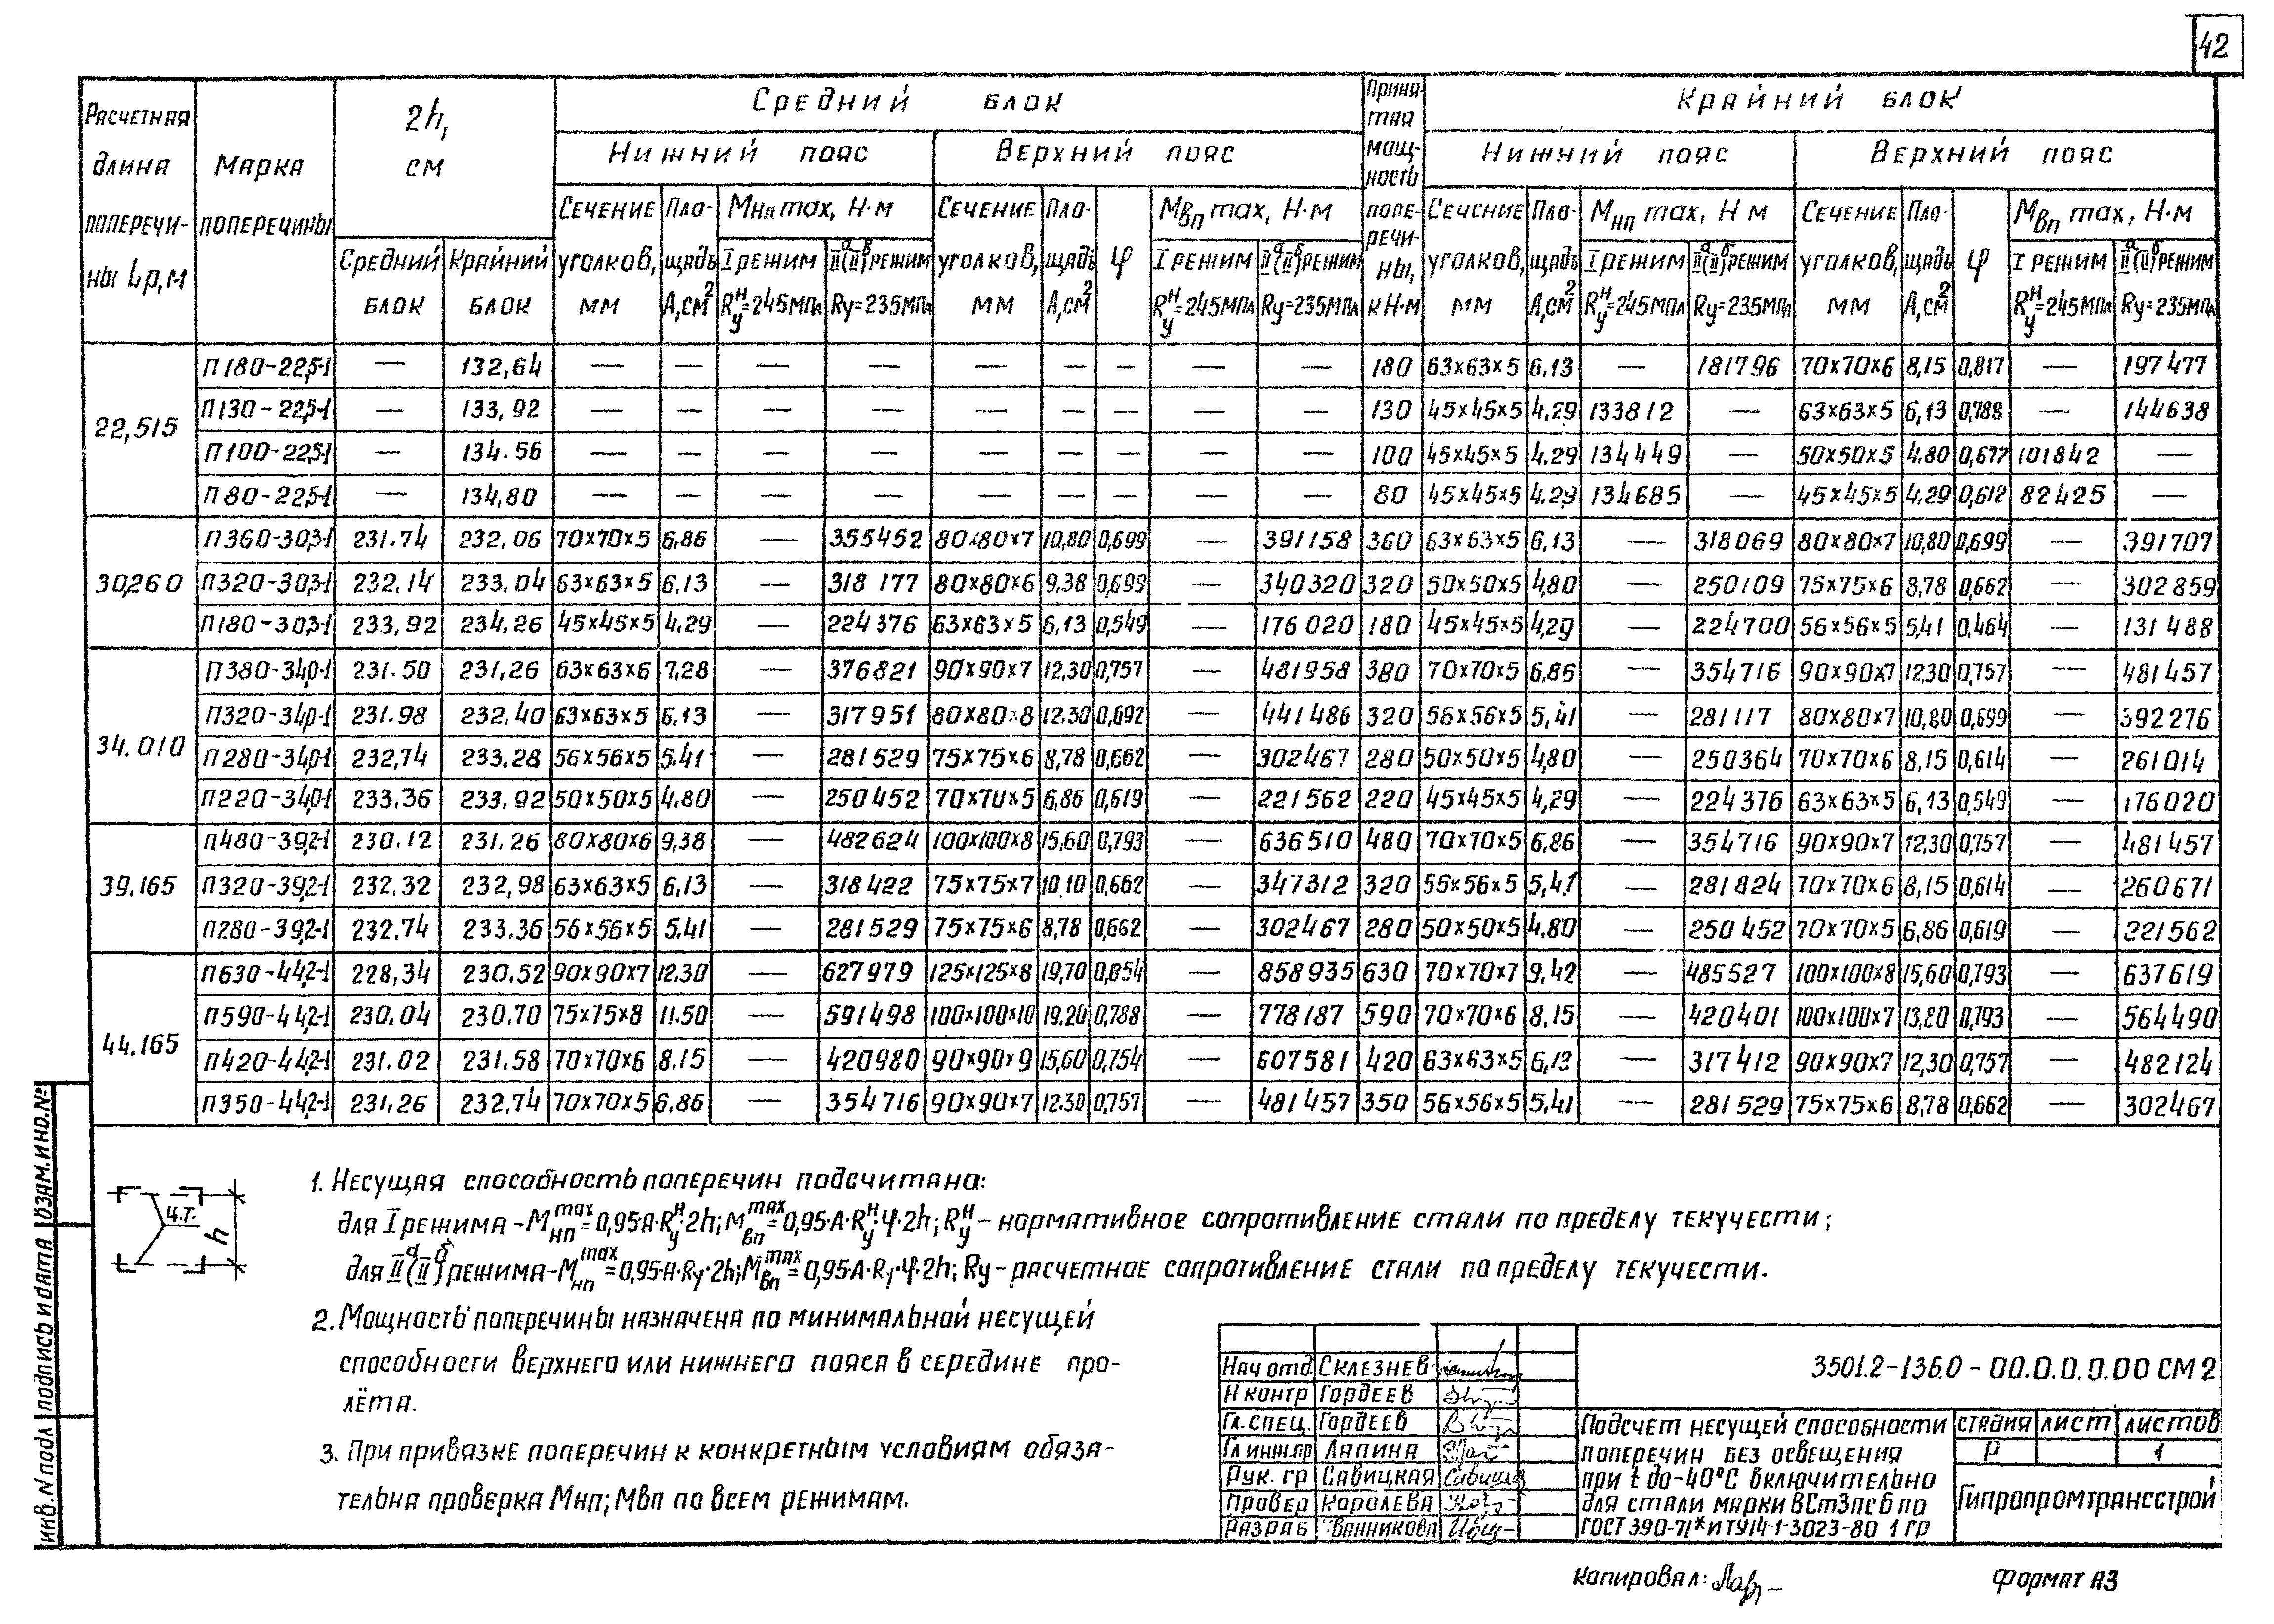 42
Расчетная длина поперечины Lр, м
Марка поперечины
2h, см
Средний блок
Принятая мощность поперечины, кН·м
Крайний блок
Нижний пояс
Верхний пояс
Нижний пояс
Верхний пояс
Средний блок
Крайний блок
Сечение уголков, мм
Площадь А, см²
Мнп max, Н·м
I режим Rуᴴ=245МПа
IIа(IIв) режим Rу=235МПа
Сечение уголков, мм
Площадь А, см²
φ
Мвп max, Н·м
I режим Rуᴴ=245МПа
IIа(IIб) режим Rу=235МПа
Сечение уголков, мм
Площадь А, см²
Мнп max, Н м
I режим Rуᴴ=245МПа
IIа(IIб) режим Rу=235МПа
Сечение уголков, мм
Площадь А, см²
φ
Мвп max, Н·м
I режим Rуᴴ=245МПа
IIа(IIб) режим Rу=235МПа
22,515
П180-22,5-1 — 132,64 — — — — — — — — — 180 63×63×5 6,13 — 181796 70×70×6 8,15 0,817 — 197477
П130-22,5-1 — 133,92 — — — — — — — — — 130 45×45×5 4,29 133812 — 63×63×5 6,13 0,788 — 144638
П100-22,5-1 — 134.56 — — — — — — — — — 100 45×45×5 4,29 134449 — 50×50×5 4,80 0,677 101842 —
П80-22,5-1 — 134,80 — — — — — — — — — 80 45×45×5 4,29 134685 — 45×45×5 4,29 0,612 82425 —
30,260
П360-30,3-1 231.74 232,06 70×70×5 6,86 — 355452 80×80×7 10,80 0,699 — 391158 360 63×63×5 6,13 — 318069 80×80×7 10,80 0,699 — 391707
П320-30,3-1 232,14 233,04 63×63×5 6,13 — 318 177 80×80×6 9,38 0,699 — 340320 320 50×50×5 4,80 — 250109 75×75×6 8,78 0,662 — 302859
П180-30,3-1 233,92 234,26 45×45×5 4,29 — 224376 63×63×5 6,13 0,549 — 176020 180 45×45×5 4,29 — 224700 56×56×5 5,41 0,464 — 131488
34.010
П380-34,0-1 231.50 231,26 63×63×6 7,28 — 376821 90×90×7 12,30 0,757 — 481958 380 70×70×5 6,86 — 354716 90×90×7 12,30 0,757 — 481457
П320-34,0-1 231.98 232,40 63×63×5 6,13 — 317951 80×80×8 12.30 0,692 — 441486 320 56×56×5 5,41 — 281117 80×80×7 10,80 0,699 — 392276
П280-34,0-1 232,74 233,28 56×56×5 5,41 — 281529 75×75×6 8,78 0,662 — 302467 280 50×50×5 4,80 — 250364 70×70×6 8,15 0,614 — 261014
П220-34,0-1 233,36 233,92 50×50×5 4,80 — 250452 70×70×5 6,86 0,619 — 221562 220 45×45×5 4,29 — 224376 63×63×5 6,13 0,549 — 176020
39,165
П480-39,2-1 230.12 231.26 80×80×6 9,38 — 482624 100×100×8 15,60 0,793 — 636510 480 70×70×5 6,86 — 354716 90×90×7 12,30 0,757 — 481457
П320-39,2-1 232,32 232,98 63×63×5 6,13 — 318422 75×75×7 10,10 0,662 — 347312 320 56×56×5 5,41 — 281824 70×70×6 8,15 0,614 — 260671
П280-39,2-1 232,74 233.36 56×56×5 5,41 — 281529 75×75×6 8,78 0,662 — 302467 280 50×50×5 4,80 — 250452 70×70×5 6,86 0,619 — 221562
44,165
П630-44,2-1 228,34 230.52 90×90×7 12.30 — 627979 125×125×8 19,70 0,854 — 858935 630 70×70×7 9,42 — 485527 100×100×8 15,60 0,793 — 637619
П590-44,2-1 230,04 230.70 75×75×8 11.50 — 591498 100×100×10 19,20 0,788 — 778187 590 70×70×6 8,15 — 420401 100×100×7 13,80 0,793 — 564490
П420-44,2-1 231.02 231.58 70×70×6 8.15 — 420980 90×90×9 15,60 0,754 — 607581 420 63×63×5 6,13 — 317412 90×90×7 12,30 0,757 — 482124
П350-44,2-1 231,26 232,74 70×70×5 6,86 — 354716 90×90×7 12.30 0,757 — 481457 350 56×56×5 5,41 — 281529 75×75×6 8,78 0,662 — 302467
ц.т.
h
1. Несущая способность поперечин подсчитана:
для I режима – Мнп max = 0,95·А·Rуᴴ·2h; Мвп max = 0,95·А·Rуᴴ·φ·2h; Rуᴴ – нормативное сопротивление стали по пределу текучести;
для IIа(IIб) режима – Мнп max = 0,95·А·Rу·2h; Мвп max = 0,95·А·Rу·φ·2h; Rу – расчетное сопротивление стали по пределу текучести.
2. Мощность поперечины назначена по минимальной несущей
способности верхнего или нижнего пояса в середине про-
лёта.
3. При привязке поперечин к конкретным условиям обяза-
тельна проверка Мнп; Мвп по всем режимам.
Инв. N подл
Подпись и дата
Взам. инв. №
Нач отд Склезнев
Н контр Гордеев
Гл. спец. Гордеев
Гл инж. пр Лапина
Рук. гр Савицкая
Провер Королева
Разраб Иванникова
3501.2-136.0-00.0.0.0.00 СМ2
Подсчет несущей способности
поперечин без освещения
при t до -40°С включительно
для стали марки ВСт3пс6 по
ГОСТ 390-71* и ТУ14-1-3023-80 1 гр
Стадия Лист Листов
Р 1
Гипропромтрансстрой
Копировал:
Формат А3